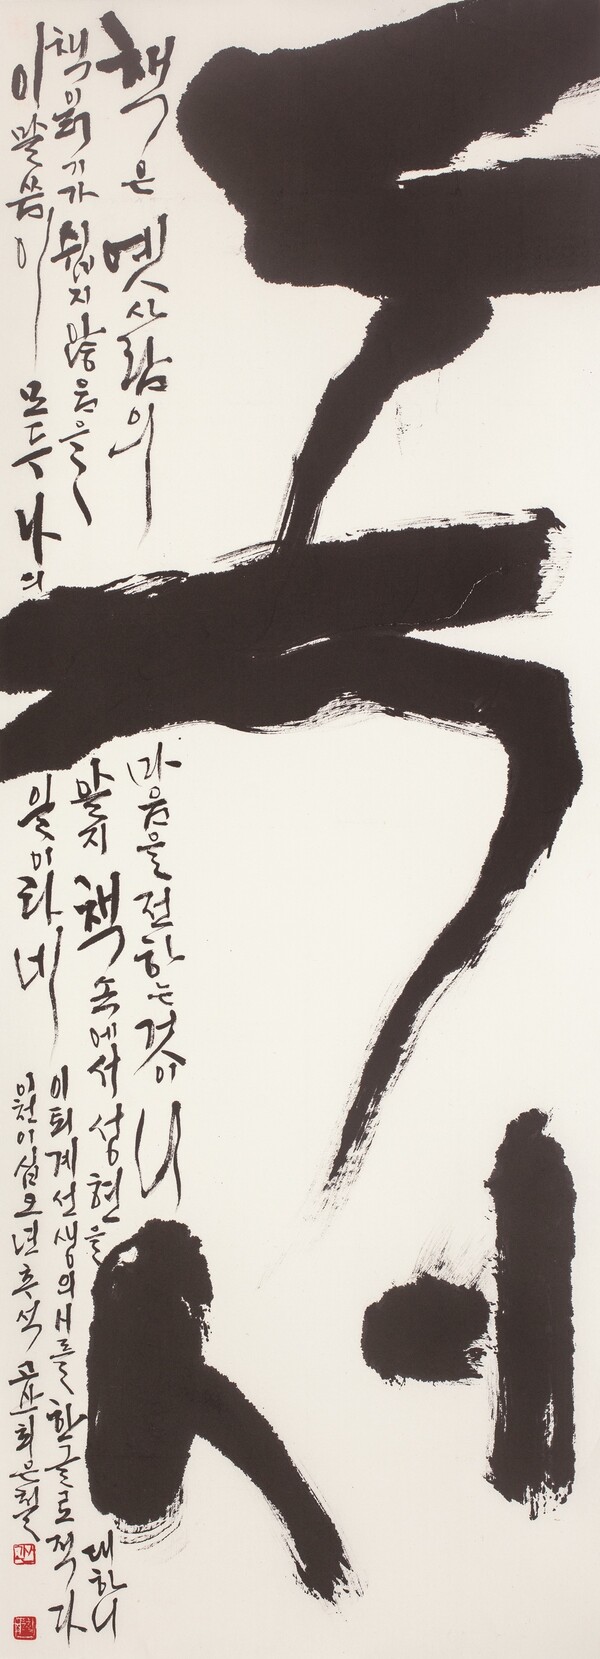 독서
책은 옛사람의 마음을 전하는 것이니
책 읽기가 쉽지 않음을 알지 책 속에서 성현을 대하니
이 말씀이 모두 나의 일이라네
이퇴계선생의 시를 한글로 적다
이천이십오년 추석 고산 최은철